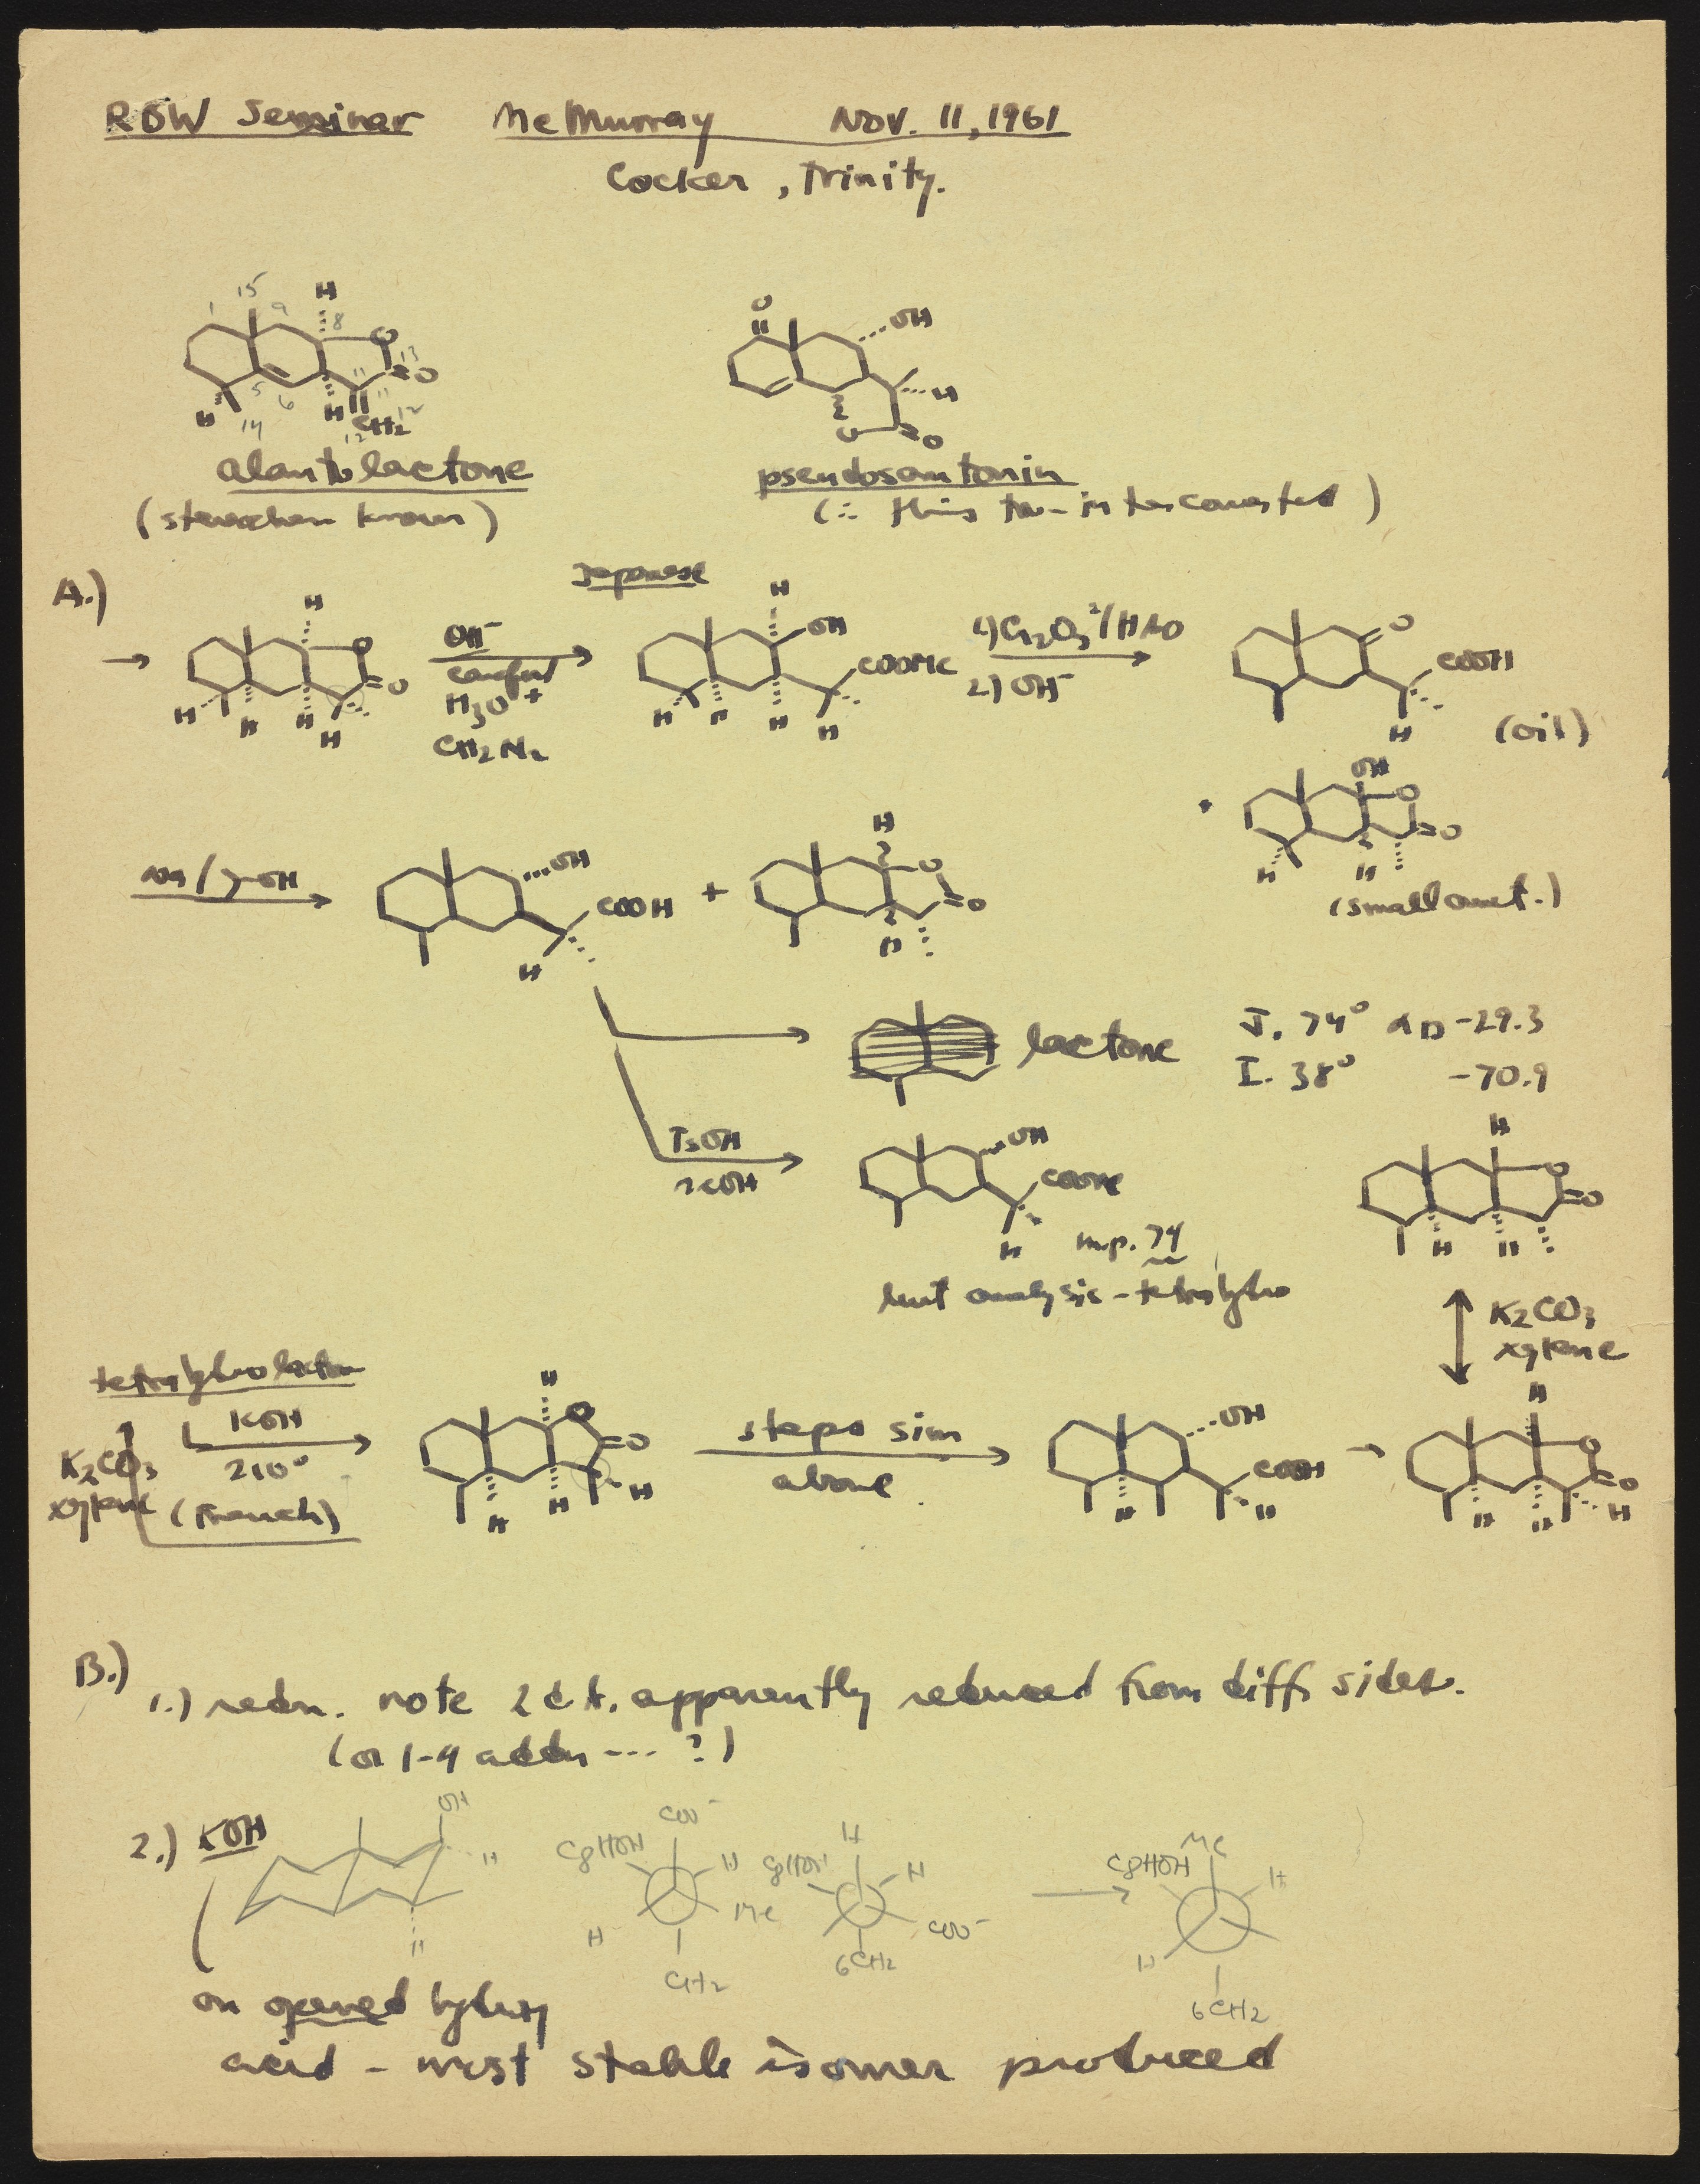 RBW Seminar McMurray Nov. 11, 1961
Cocker, Trinity.
15 H
1 9 8 O
13 O
5 6 11
H 14 H CH2 12
alantolactone
(stereochem known)
O OH
H
O O
pseudosantonin
(∴ this to - interconverted)
A.)
Japanese
→ H O O H H H H
OH⁻
careful
H3O+
CH2N2
H OH COOMe H H H H
1) Cr2O3 / HAO
2) OH⁻
O COOH H
(oil)
+ OH O O H H
(small amt.)
Na / OH
OH COOH H
+ H O O H
lactone J. 74° αD -29.3
I. 38° -70.9
TsOH
OH COOMe H
m.p. 74
but analysis - tetrahydro
H O O H H
K2CO3
xylene
tetrahydrolactone
KOH
210°
(French)
K2CO3
xylene
H O O H H H
steps sim
above
OH COOH H H
→ H O O H H H
B.)
1.) redn. note apparently reduced from diff sides.
(or 1-4 addn --- ?)
2.) KOH
OH H H
COO⁻ C8HOH H Me H CH2
H C8HOH H COO⁻ 6CH2
→ Me C8HOH H H 6CH2
on opened hydroxy
acid - most stable isomer produced